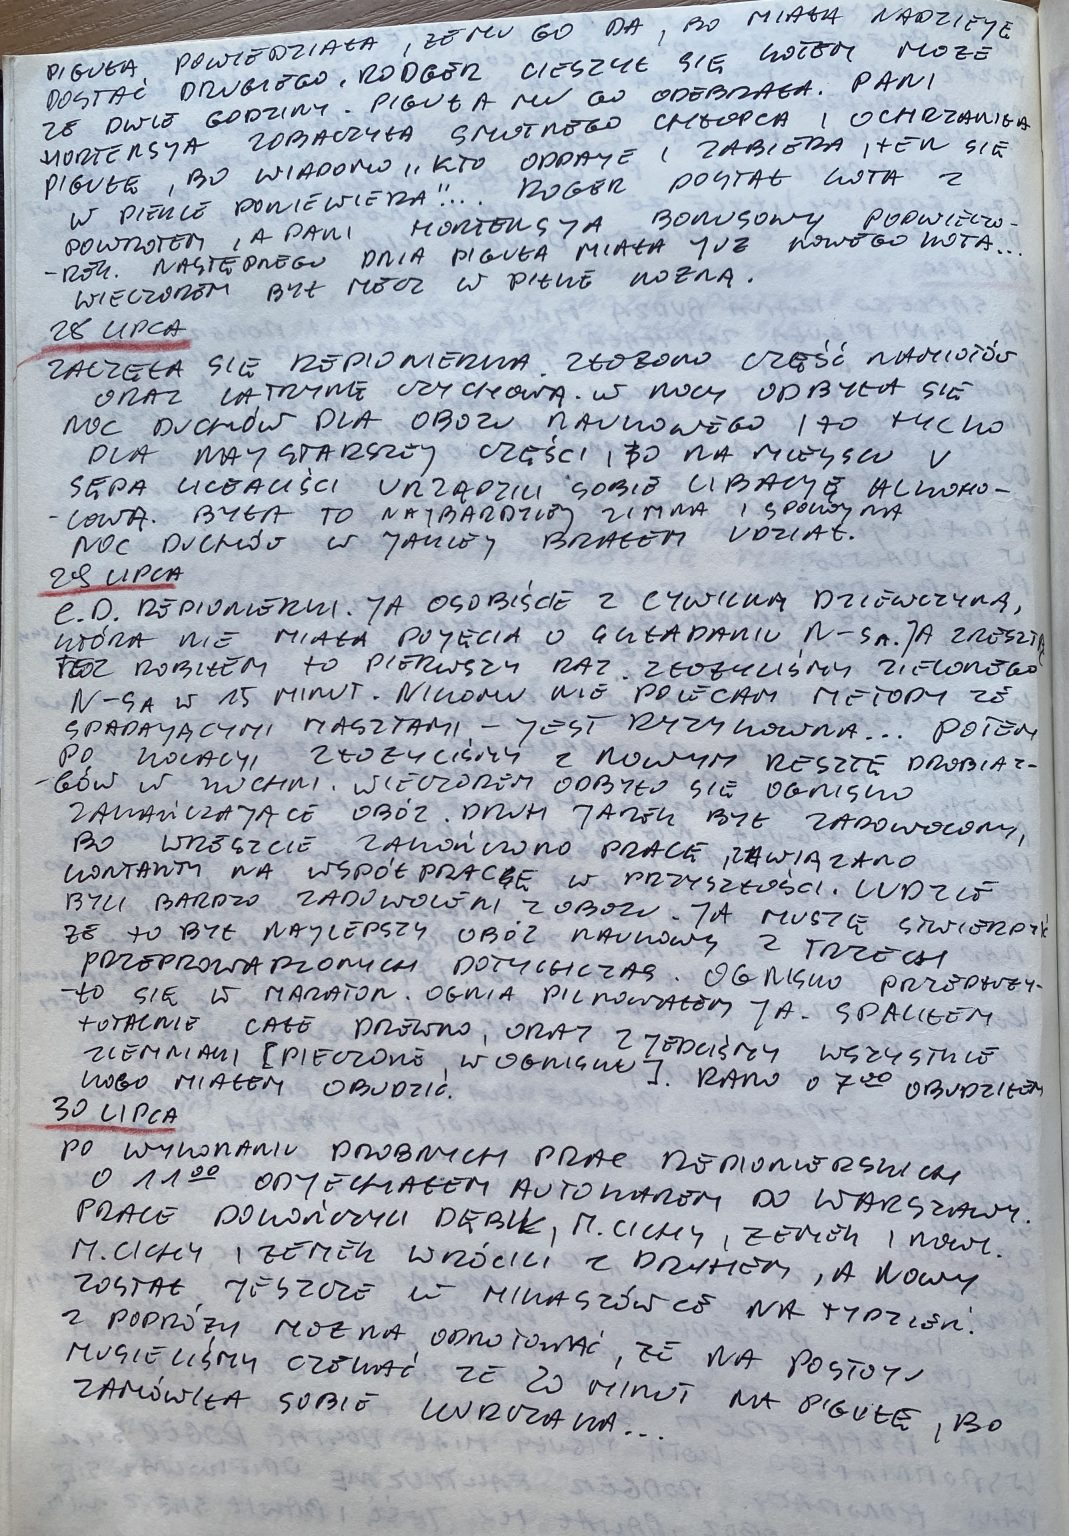 PIGUŁA POWIEDZIAŁA, ŻE MU GO DA, BO MIAŁA NADZIEJĘ
DOSTAĆ DRUGIEGO. RODGER CIESZYŁ SIĘ KOTEM MOŻE
ZE DWIE GODZINY. PIGUŁA MU GO ODEBRAŁA. PANI
HORTENSJA ZOBACZYŁA SMUTNEGO CHŁOPCA I OCHRZANIŁA
PIGUŁĘ, BO WIADOMO „KTO ODDAJE I ZABIERA, TEN SIĘ
W PIEKLE PONIEWIERA"... ROGER DOSTAŁ KOTA Z
POWROTEM, A PANI HORTENSJA BONUSOWY PODWIECZO-
-REK. NASTĘPNEGO DNIA PIGUŁA MIAŁA JUŻ NOWEGO KOTA...
WIECZOREM BYŁ MECZ W PIŁKĘ NOŻNĄ.
28 LIPCA
ZACZĘŁA SIĘ REPIONIERKA. ZŁOŻONO CZĘŚĆ NAMIOTÓW
ORAZ LATRYNĘ ZUCHOWĄ. W NOCY ODBYŁA SIĘ
NOC DUCHÓW DLA OBOZU NAUKOWEGO I TO TYLKO
DLA NAJSTARSZEJ CZĘŚCI, BO NA MIEJSCU U
SĘPA LICEALIŚCI URZĄDZILI SOBIE LIBACJĘ ALKOHO-
-LOWĄ. BYŁA TO NAJBARDZIEJ ZIMNA I SPOKOJNA
NOC DUCHÓW W JAKIEJ BRAŁEM UDZIAŁ.
29 LIPCA
C.D. REPIONIERKI. JA OSOBIŚCIE Z CYWILNĄ DZIEWCZYNĄ,
KTÓRA NIE MIAŁA POJĘCIA O SKŁADANIU N-SA. JA ZRESZTĄ
TEŻ ROBIŁEM TO PIERWSZY RAZ. ZŁOŻYLIŚMY ZIELONEGO
N-SA W 15 MINUT. NIKOMU NIE POLECAM METODY ZE
SPADAJĄCYMI MASZTAMI - JEST RYZYKOWNA... POTEM
PO KOLACJI ZŁOŻYLIŚMY Z NOWYM RESZTĘ DROBIAZ-
-GÓW W KUCHNI. WIECZOREM ODBYŁO SIĘ OGNISKO
ZAKAŃCZAJĄCE OBÓZ. DRUH JAREK BYŁ ZADOWOLONY,
BO WRESZCIE ZAKOŃCZONO PRACĘ, ZAWIĄZANO
KONTAKTY NA WSPÓŁPRACĘ W PRZYSZŁOŚCI. LUDZIE
BYLI BARDZO ZADOWOLENI Z OBOZU. JA MUSZĘ STWIERDZIĆ
ŻE TO BYŁ NAJLEPSZY OBÓZ NAUKOWY Z TRZECH
PRZEPROWADZONYCH DOTYCHCZAS. OGNISKO PRZEDŁUŻY-
-ŁO SIĘ W MARATON. OGNIA PILNOWAŁEM JA. SPALIŁEM
TOTALNIE CAŁE DREWNO, ORAZ ZJEDLIŚMY WSZYSTKIE
ZIEMNIAKI [PIECZONE W OGNISKU]. RANO O 7⁰⁰ OBUDZIŁEM
KOGO MIAŁEM OBUDZIĆ.
30 LIPCA
PO WYKONANIU DROBNYCH PRAC REPIONIERSKICH
O 11⁰⁰ ODJECHAŁEM AUTOKAREM DO WARSZAWY.
PRACE DOKOŃCZYLI DĘBIK, M. CICHY, ZEMEK I NOWY.
M. CICHY I ZEMEK WRÓCILI Z DRUHEM, A NOWY
ZOSTAŁ JESZCZE W MIKASZÓWCE NA TYDZIEŃ.
Z PODRÓŻY MOŻNA ODNOTOWAĆ, ŻE NA POSTOJU
MUSIELIŚMY CZEKAĆ ZE 20 MINUT NA PIGUŁĘ, BO
ZAMÓWIŁA SOBIE KURCZAKA...